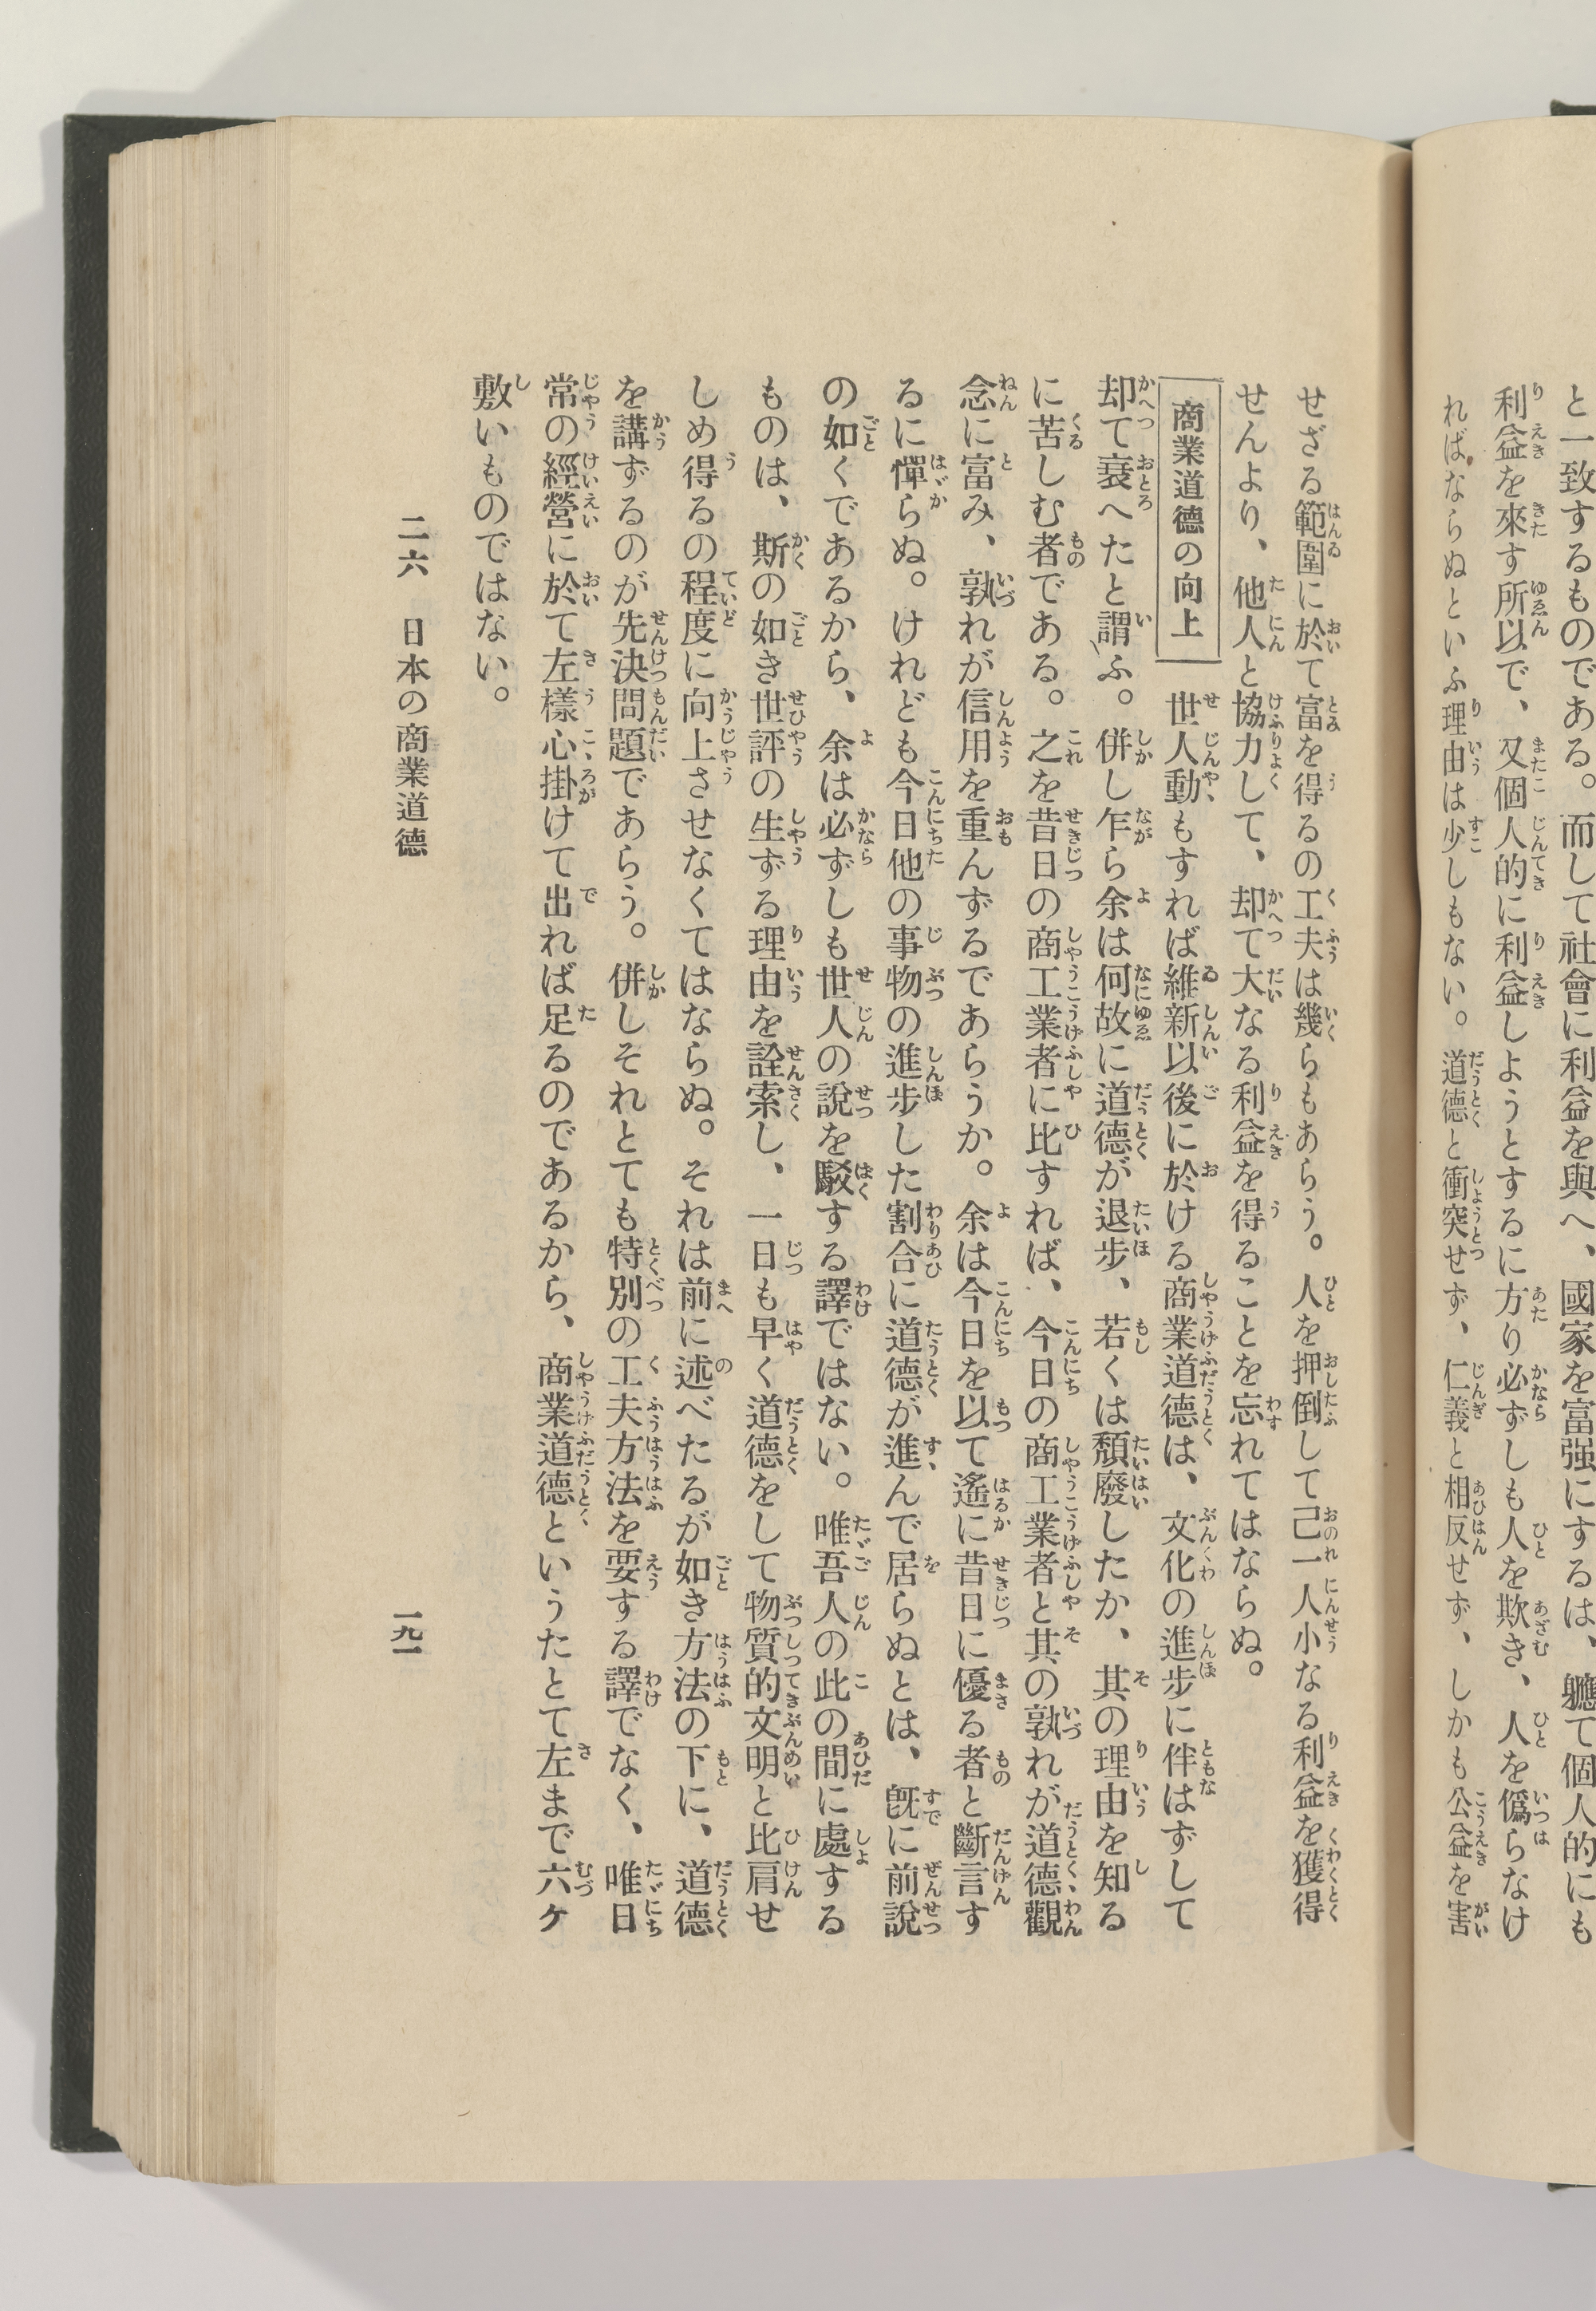 と一致するものである。而して社會に利益を與へ、國家を富强にするは、軈て個人的にも
利益を來す所以で、又個人的に利益しようとするに方り必ずしも人を欺き、人を僞らなけ
ればならぬといふ理由は少しもない。道德と衝突せず、仁義と相反せず、しかも公益を害
せざる範圍に於て富を得るの工夫は幾らもあらう。人を押倒して己一人小なる利益を獲得
せんより、他人と協力して、却て大なる利益を得ることを忘れてはならぬ。
商業道德の向上　世人動もすれば維新以後に於ける商業道德は、文化の進步に伴はずして
却て衰へたと謂ふ。併し乍ら余は何故に道德が退步、若くは頽廢したか、其の理由を知る
に苦しむ者である。之を昔日の商工業者に比すれば、今日の商工業者と其の孰れが道德觀
念に富み、孰れが信用を重んずるであらうか。余は今日を以て遙に昔日に優る者と斷言す
るに憚らぬ。けれども今日他の事物の進步した割合に道德が進んで居らぬとは、旣に前說
の如くであるから、余は必ずしも世人の說を駁する譯ではない。唯吾人の此の間に處する
ものは、斯の如き世評の生ずる理由を詮索し、一日も早く道德をして物質的文明と比肩せ
しめ得るの程度に向上させなくてはならぬ。それは前に述べたるが如き方法の下に、道德
を講ずるのが先決問題であらう。併しそれとても特別の工夫方法を要する譯でなく、唯日
常の經營に於て左樣心掛けて出れば足るのであるから、商業道德というたとて左まで六ケ
敷いものではない。
二六　日本の商業道德　一九一